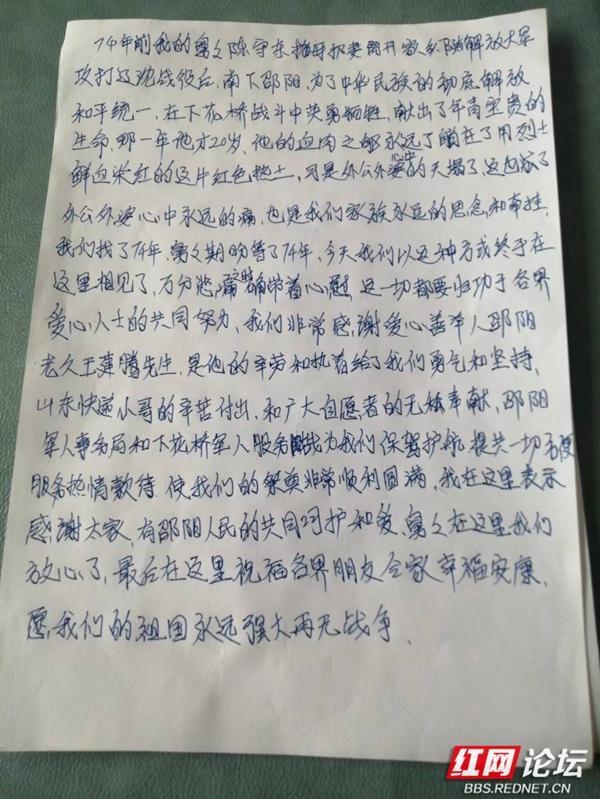 74年前我的舅父陈守东抛母扔妻离开家乡随解放大军
攻打辽沈战役后，南下邵阳，为了中华民族的彻底解放
和平统一，在下花桥战斗中英勇牺牲，献出了年青宝贵的
生命，那一年他才20岁，他的血肉之躯永远了躺在了用烈士
鲜血染红的这片红色热土，可是外公外婆心中的天塌了，这也成了
外公外婆心中永远的痛，也是我们家族永远的思念和牵挂，
我们找了74年，舅父期盼等了74年，今天我们以这种方式终于在
这里相见了，万分悲痛之时确带着心慰，这一切都要归功于各界
爱心人士的共同努力，我们非常感谢爱心善举人邵阳
老久王建腾先生，是他的辛劳和执着给了我们勇气和坚持，
山东快递小哥的辛苦付出，和广大自愿者的无私奉献，邵阳
军人事务局和下花桥军人服务战为我们保驾护航，提共一切方便
服务热情款待，使我们的祭奠非常顺利圆满，我在这里表示
感谢大家，有邵阳人民的共同呵护和爱，舅父在这里我们
放心了，最后在这里祝福各界朋友全家幸福安康，
愿我们的祖国永远强大再无战争，
红网论坛
BBS.REDNET.CN